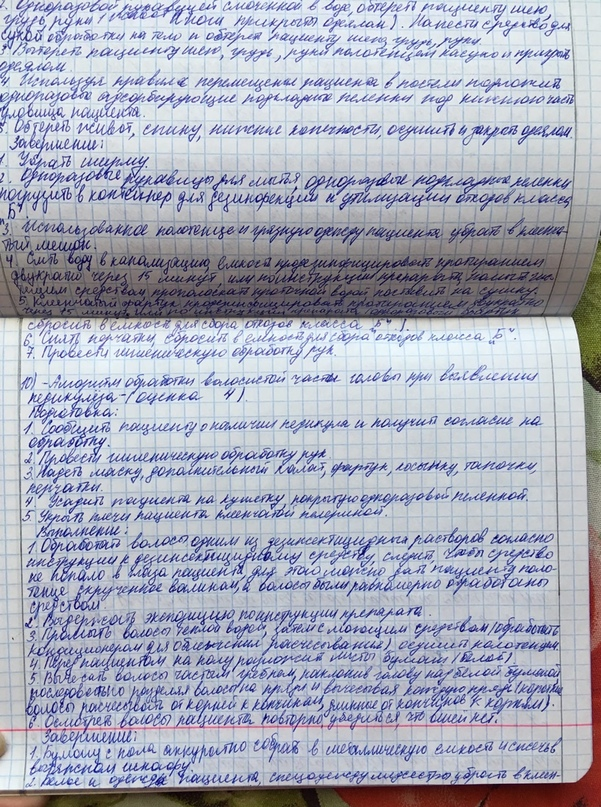 Одноразовой рукавицей смоченной в воде обтереть пациенту шею,
грудь, руки (живот и ноги прикрыты одеялом). Нанести средство для
сухой обработки на тело и обтереть пациенту шею, грудь, руки.
3. Вытереть пациенту шею, грудь, руки полотенцем насухо и прикрыть
одеялом
4. Используя правила перемещения пациента в постели подложить
одноразовые абсорбирующие подкладные пеленки под нижнюю часть
туловища пациента.
5. Обтереть живот, спину, нижние конечности, осушить и закрыть одеялом
Завершение:
1. Убрать ширму
2. Одноразовые рукавицы для мытья, одноразовые подкладные пеленки
погрузить в контейнер для дезинфекции и утилизации отходов класса
"Б"
3. Использованное полотенце и грязную одежду пациента убрать в клеен-
чатый мешок.
4. Слить воду в канализацию, емкость продезинфицировать протиранием
двукратно через 15 минут или по инструкции препарата, помыть
средством прополоскать проточной водой поставить на сушку.
5. Клеенчатый фартук продезинфицировать протиранием двукратно
через 15 минут или по инструкции препарата
сбросить в емкость для сбора отходов класса "Б".
6. Снять перчатки, сбросить в емкость для сбора отходов класса "Б".
7. Провести гигиеническую обработку рук.
10) - Алгоритм обработки волосистой части головы при выявлении
педикулеза - (оценка 4)
Подготовка:
1. Сообщить пациенту о наличии педикулеза и получить согласие на
обработку.
2. Провести гигиеническую обработку рук
3. Надеть маску, дополнительный халат, фартук, косынку, тапочки,
перчатки.
4. Усадить пациента на кушетку, покрытую одноразовой пеленкой.
5. Укрыть плечи пациента клеенчатой пелериной.
Выполнение:
1. Обработать волосы одним из дезинсектицидных растворов согласно
инструкции к дезинсектицидному средству, следить чтобы средство
не попало в глаза пациента для этого можно дать пациенту поло-
тенце скрученное валиком, а волосы были равномерно обработаны
средством
2. Выдержать экспозицию по инструкции препарата.
3. Промыть волосы теплой водой, затем с моющим средством (обработать
кондиционером для облегчения расчесывания) осушить полотенцем
4. Перед пациентом на полу разложить листы бумаги (белой)
5. Вычесать волосы частым гребнем, наклонив голову над белой бумагой
последовательно разделяя волосы на пряди и вычесывая каждую прядь (короткие
волосы расчесывать от корней к кончикам, длинные от кончиков к корням).
6. Осмотреть волосы пациента повторно убедиться, что вшей нет.
Завершение:
1. Бумагу с пола аккуратно собрать в металлическую емкость и сжечь
в вытяжном шкафу.
2. Белье и одежду пациента, спецодежду медсестры убрать в клеен-